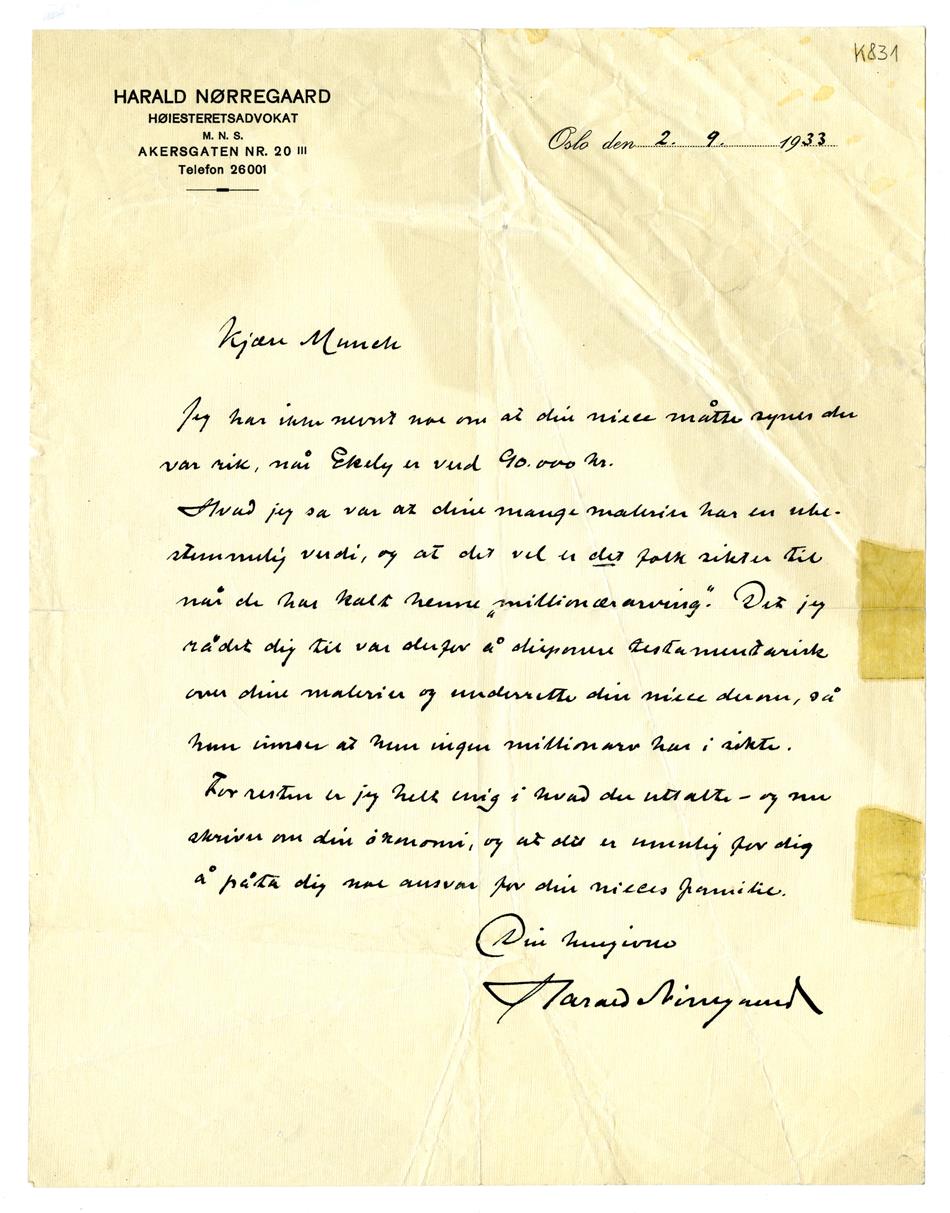 K831
HARALD NØRREGAARD
HØIESTERETSADVOKAT
M. N. S.
AKERSGATEN NR. 20 III
Telefon 26001
Oslo den 2. 9. 1933
Kjære Munch
Jeg har ikke nevnt noe om at din niece måtte synes du
var rik, når Ekely er verd 90.000 kr.
Hvad jeg sa var at dine mange malerier har en ube-
stemmelig verdi, og at det vel er det folk sikter til
når de har kalt henne „millionærarving“. Det jeg
rådet dig til var derfor å disponere testamentarisk
over dine malerier og underrette din niece derom, så
hun innser at hun ingen millionarv har i sikte.
Forresten er jeg helt enig i hvad du uttalte – og nu
skriver om din økonomi, og at det er umulig for dig
å påta dig noe ansvar for din nieces familie.
Din hengivne
Harald Nørregaard